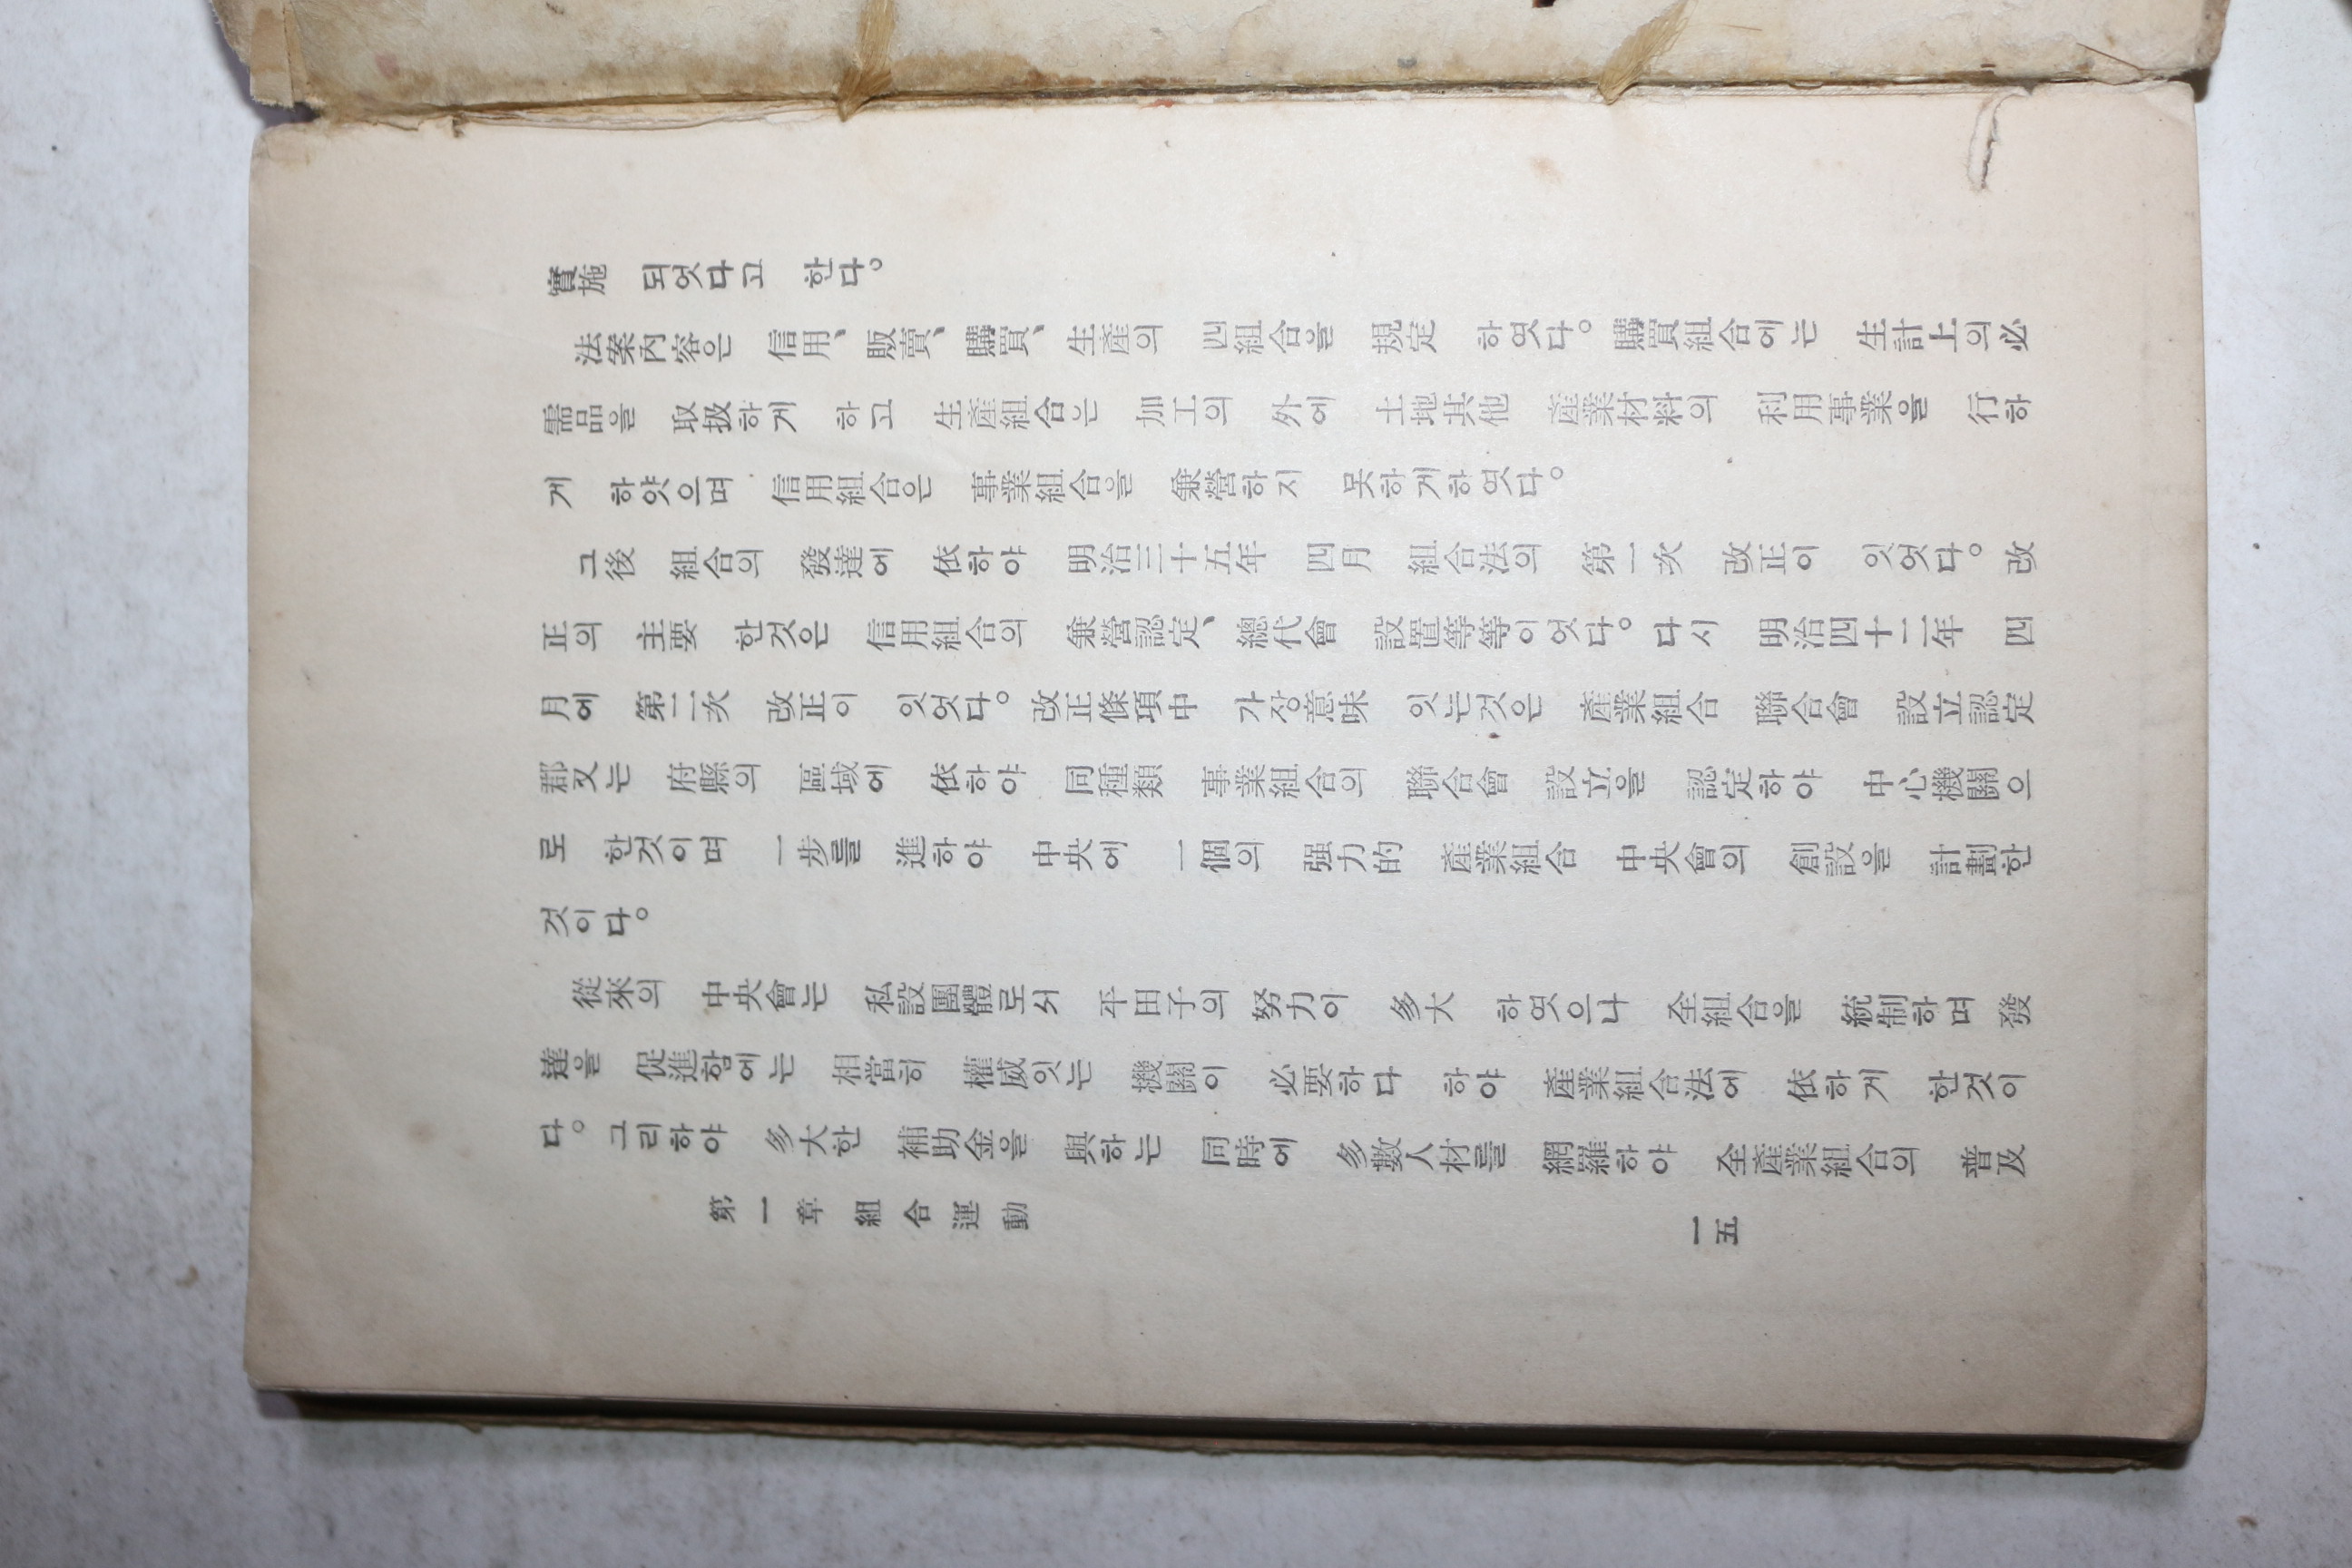 實施 되엇다고 한다。
法案內容은 信用、販賣、購買、生產의 四組合을 規定 하엿다。購買組合에는 生計上의必
需品을 取扱하게 하고 生產組合은 加工의 外에 土地其他 產業材料의 利用事業을 行하
게 하얏으며 信用組合은 事業組合을 兼營하지 못하게하엿다。
그後 組合의 發達에 依하야 明治三十五年 四月 組合法의 第一次 改正이 잇엇다。改
正의 主要 한것은 信用組合의 兼營認定、總代會 設置等等이엇다。다시 明治四十二年 四
月에 第二次 改正이 잇엇다。改正條項中 가장意味 잇는것은 產業組合 聯合會 設立認定
郡又는 府縣의 區域에 依하야 同種類 事業組合의 聯合會 設立을 認定하야 中心機關으
로 한것이며 一步를 進하야 中央에 一個의 强力的 產業組合 中央會의 創設을 計劃한
것이다。
從來의 中央會는 私設團體로서 平田子의 努力이 多大 하엿으나 全組合을 統制하며 發
達을 促進함에는 相當히 權威잇는 機關이 必要하다 하야 產業組合法에 依하게 한것이
다。그리하야 多大한 補助金을 與하는 同時에 多數人材를 網羅하야 全產業組合의 普及
第一章 組合運動
一五